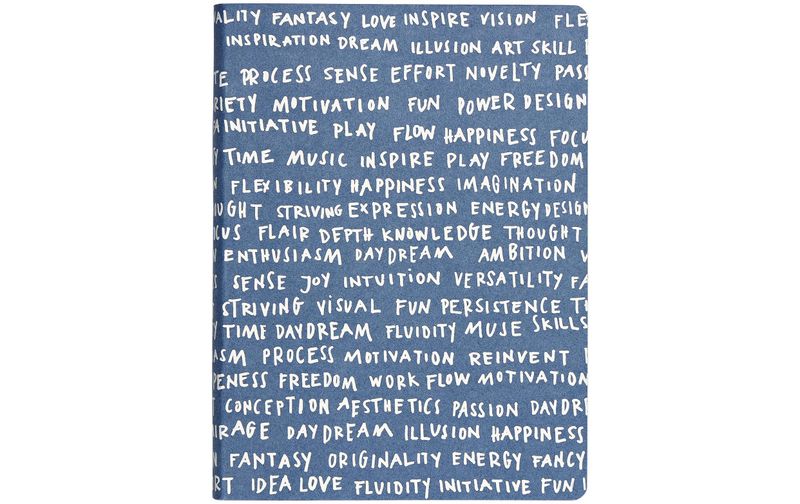 ALITY FANTASY LOVE INSPIRE VISION FLE
INSPIRATION DREAM ILLUSION ART SKILL
TE PROCESS SENSE EFFORT NOVELTY PAS
RIETY MOTIVATION FUN POWER DESIGN
A INITIATIVE PLAY FLOW HAPPINESS FOCU
Y TIME MUSIC INSPIRE PLAY FREEDOM
N FLEXIBILITY HAPPINESS IMAGINATION
OUGHT STRIVING EXPRESSION ENERGY DESIGN
CUS FLAIR DEPTH KNOWLEDGE THOUGHT
N ENTHUSIASM DAYDREAM AMBITION V
S SENSE JOY INTUITION VERSATILITY FA
STRIVING VISUAL FUN PERSISTENCE T
Y TIME DAYDREAM FLUIDITY MUSE SKILLS
ASM PROCESS MOTIVATION REINVENT
PENESS FREEDOM WORK FLOW MOTIVATION
T CONCEPTION AESTHETICS PASSION DAYDR
IRAGE DAYDREAM ILLUSION HAPPINESS
N FANTASY ORIGINALITY ENERGY FANCY
RT IDEA LOVE FLUIDITY INITIATIVE FUN I